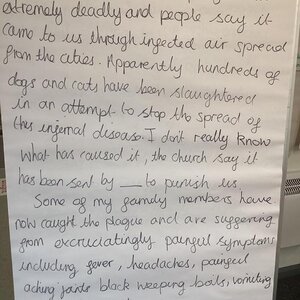 extremely deadly and people say it
came to us through infected air spread
from the cities. Apparently hundreds of
dogs and cats have been slaughtered
in an attempt to stop the spread of
this infernal disease. I don't really know
what has caused it, the church say it
has been sent by __ to punish us.
Some of my family members have
now caught the plague and are suffering
from excruciatingly painful symptoms
including fever, headaches, painful
aching joints black weeping boils, vomiting